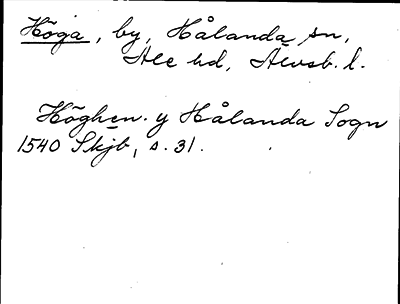 Höga, by, Hålanda sn,
Ale hd, Älvsb. l.
Höghen. y Hålanda Sogn
1540 Skjb, s. 31.